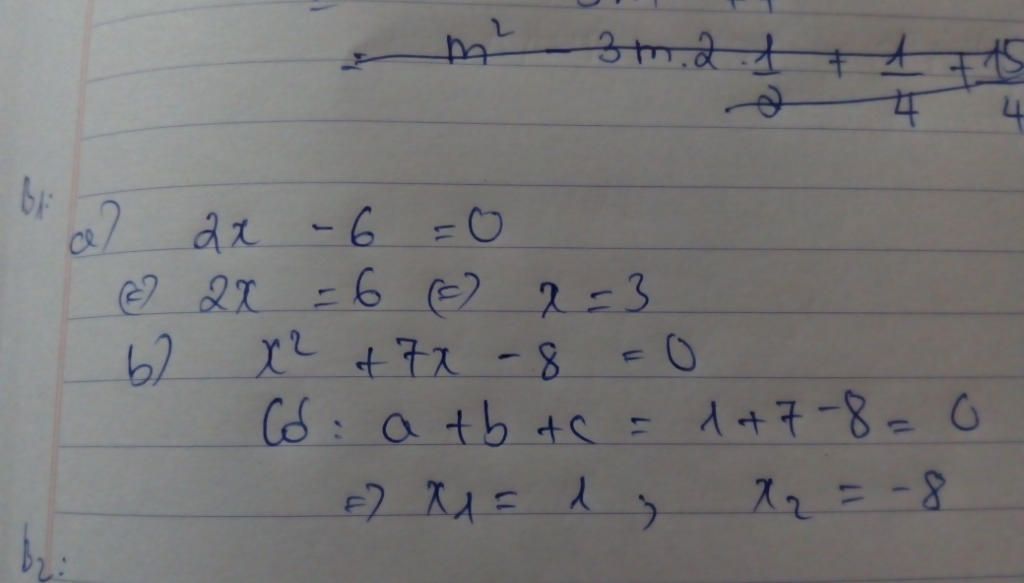 = m² - 3m.2.1/2 + 1/4 + 15/4
B1:
a) 2x - 6 = 0
(=) 2x = 6 (=) x = 3
b) x² + 7x - 8 = 0
Có : a + b + c = 1 + 7 - 8 = 0
=> x1 = 1 ; x2 = -8
B2: